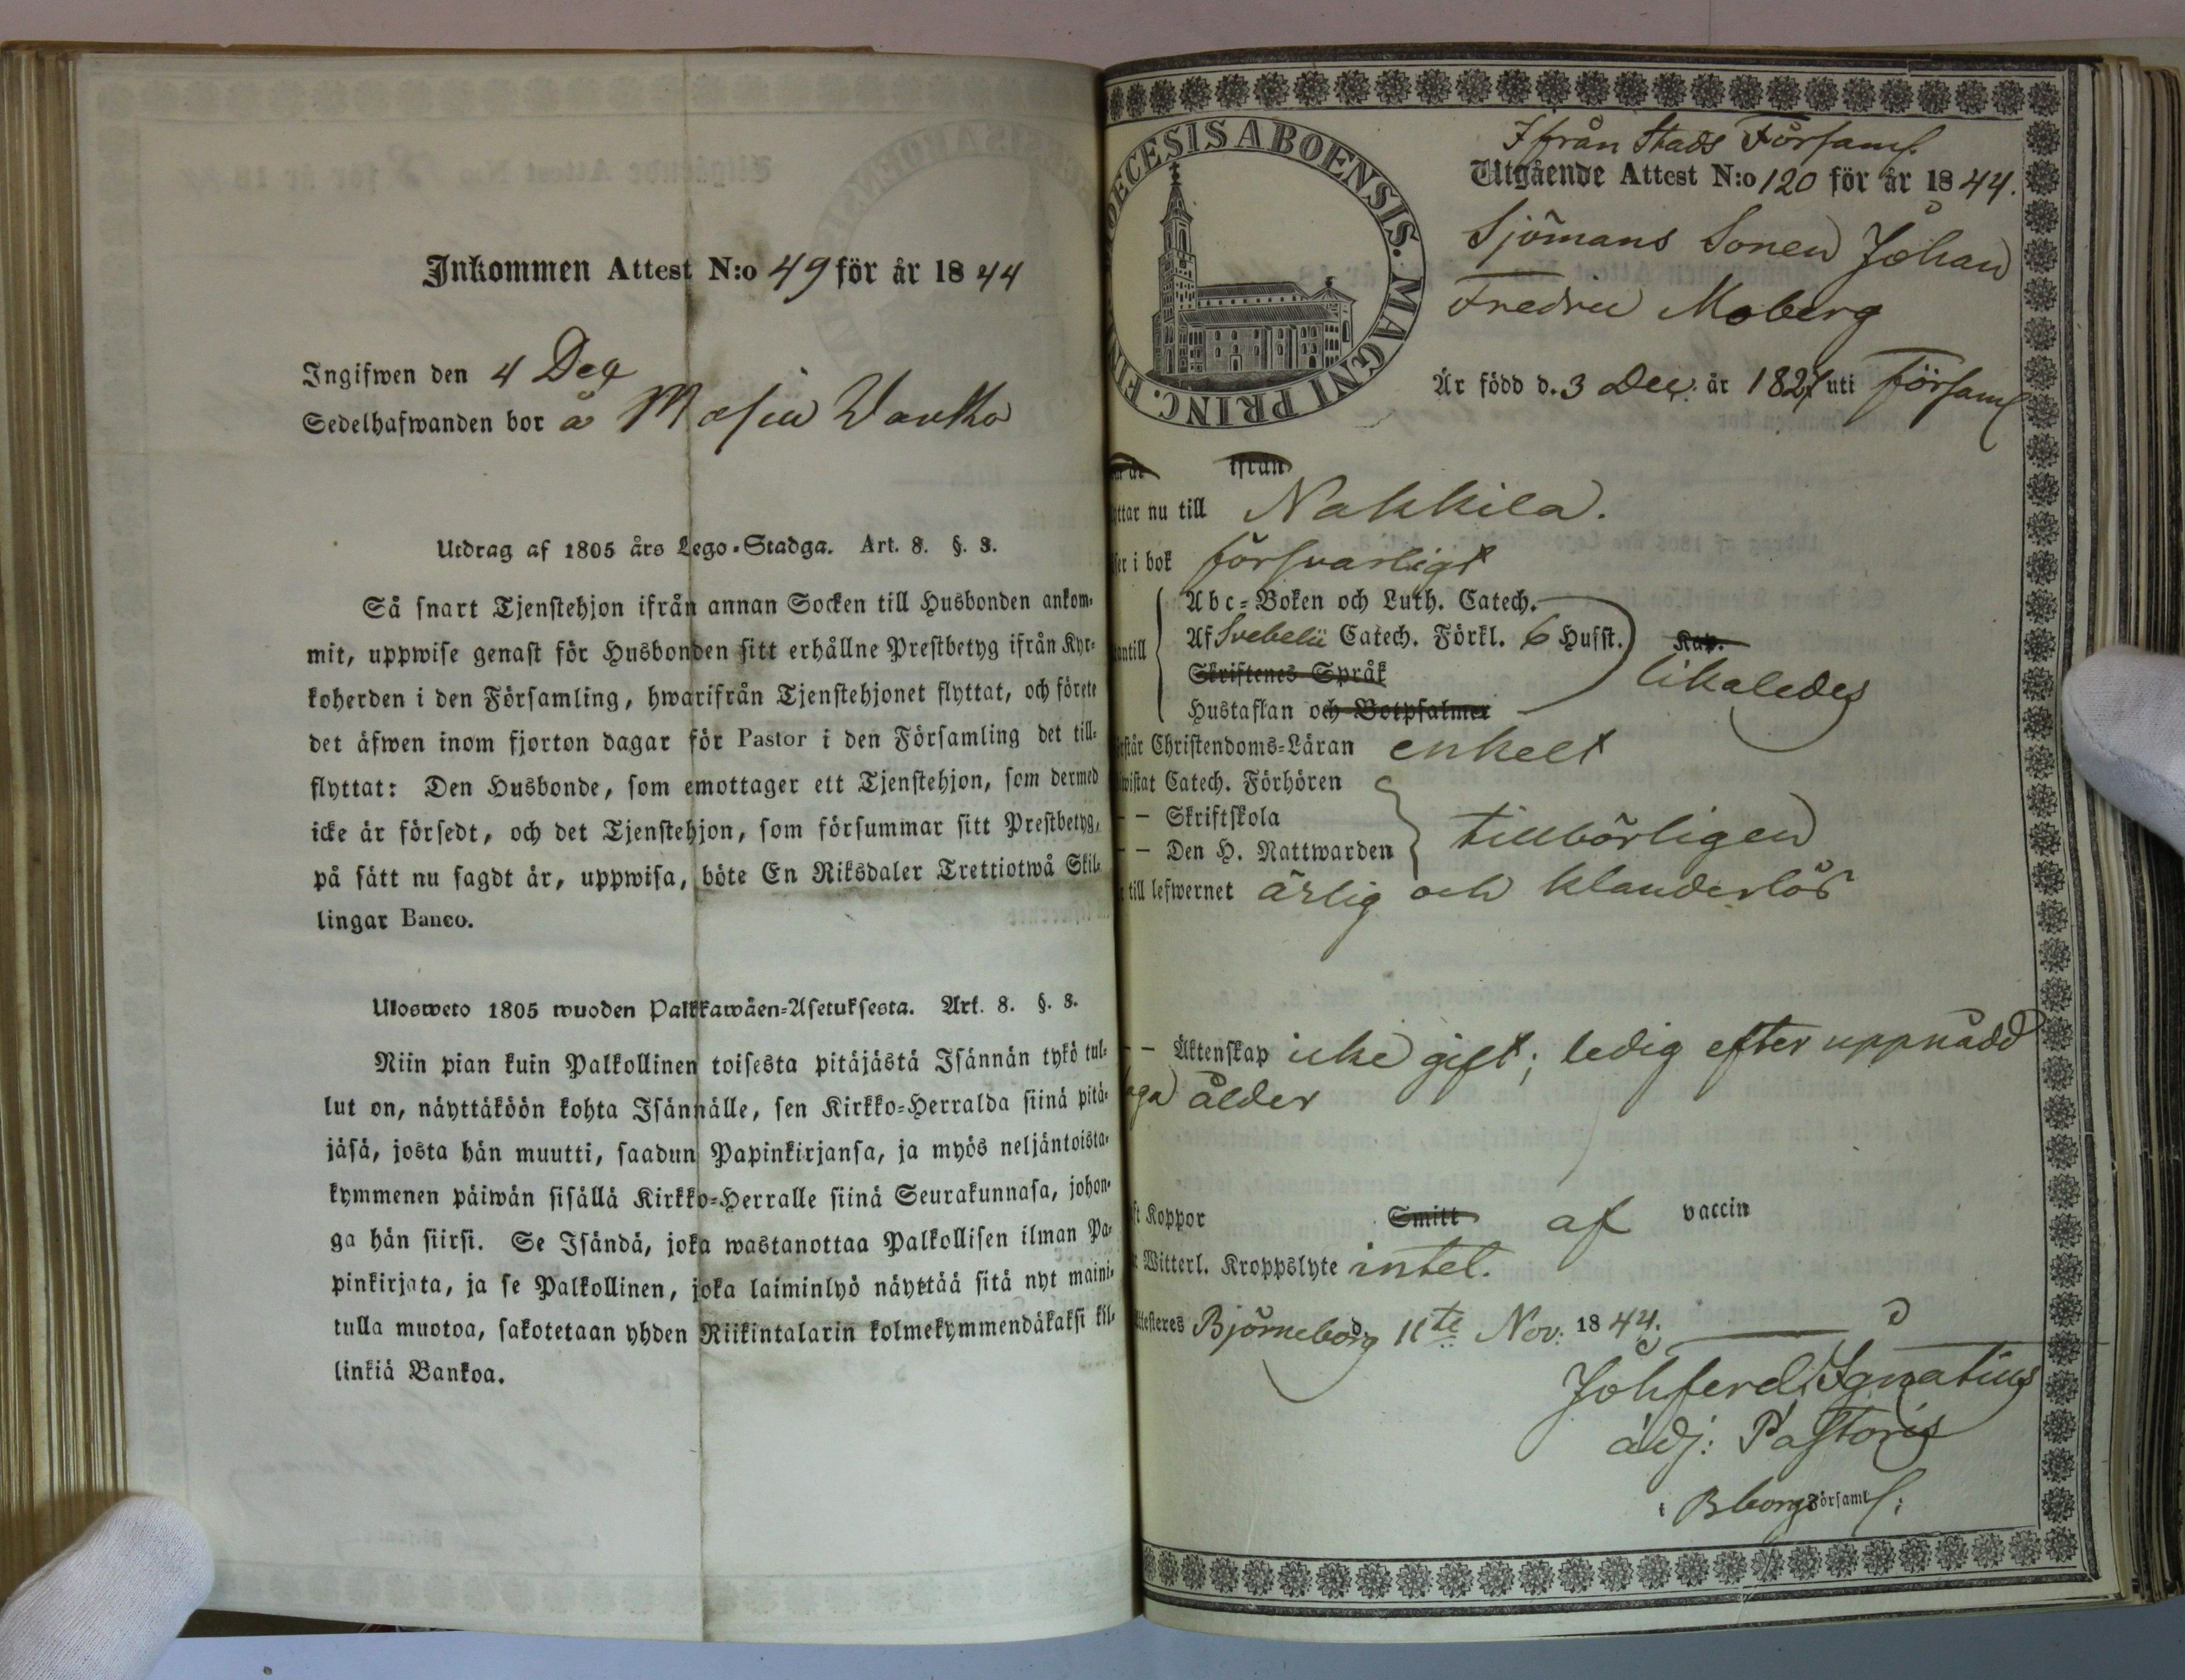 Inkommen Attest N:o 49 för år 1844
Ingifwen den 4 Dec
Sedelhafwanden bor å
Utdrag af 1805 års Lego-Stadga. Art. 8. §. 3.
Så snart Tjenstehjon ifrån annan Socken till Husbonden ankom-
mit, uppwise genast för Husbonden sitt erhållne Prestbetyg ifrån Kyr-
koherden i den Församling, hwarifrån Tjenstehjonet flyttat, och förete
det äfwen inom fjorton dagar för Pastor i den Församling det till-
flyttat: Den Husbonde, som emottager ett Tjenstehjon, som dermed
icke är försedt, och det Tjenstehjon, som försummar sitt Prestbetyg,
på sätt nu sagdt är, uppwisa, böte En Riksdaler Trettiotwå Skil-
lingar Banco.
Ulosweto 1805 wuoden Palkkawäen-Asetuksesta. Art. 8. §. 3.
Niin pian kuin Palkollinen toisesta pitäjästä Isännän tykö tul-
lut on, näyttäköön kohta Isännälle, sen Kirkko-Herralda siinä pitä-
jäsä, josta hän muutti, saadun Papinkirjansa, ja myös neljäntoista-
kymmenen päiwän sisällä Kirkko-Herralle siinä Seurakunnasa, johon-
ga hän siirsi. Se Isändä, joka wastanottaa Palkollisen ilman Pa-
pinkirjata, ja se Palkollinen, joka laiminlyö näyttää sitä nyt maini-
tulla muotoa, sakotetaan yhden Riikintalarin kolmekymmendäkaksi kil-
linkiä Bankoa.
DIOECESIS ABOENSIS. MAGNI PRINC.
Ifrån Stads Församl.
Utgående Attest N:o 120 för år 1844.
Sjömans Sonen Johan
Fredric Moberg
Är född d. 3 Dec. år 1827 uti Församl
ifrån
ttar nu till Nakkila.
ser i bok försvarligt
Abc-Boken och Luth. Catech.
antill Af Svebelii Catech. Förkl. 6 Husst. Kap.
Skriftenes Språk likaledes
Hustaflan och Botpsalmer
rstår Christendoms-Läran enkelt
wistat Catech. Förhören
— Skriftskola tillbörligen
— Den H. Nattwarden
till lefwernet ärlig och klanderlös
— Äktenskap icke gift; ledig efter uppnådd
laga ålder
ft Koppor Smitt af vaccin
Witterl. Kroppslyte intet.
Attesteres Björneborg 11te Nov. 1844.
Joh ferd. Ignatius
adj: Pastoris
i Bborgs Församl: